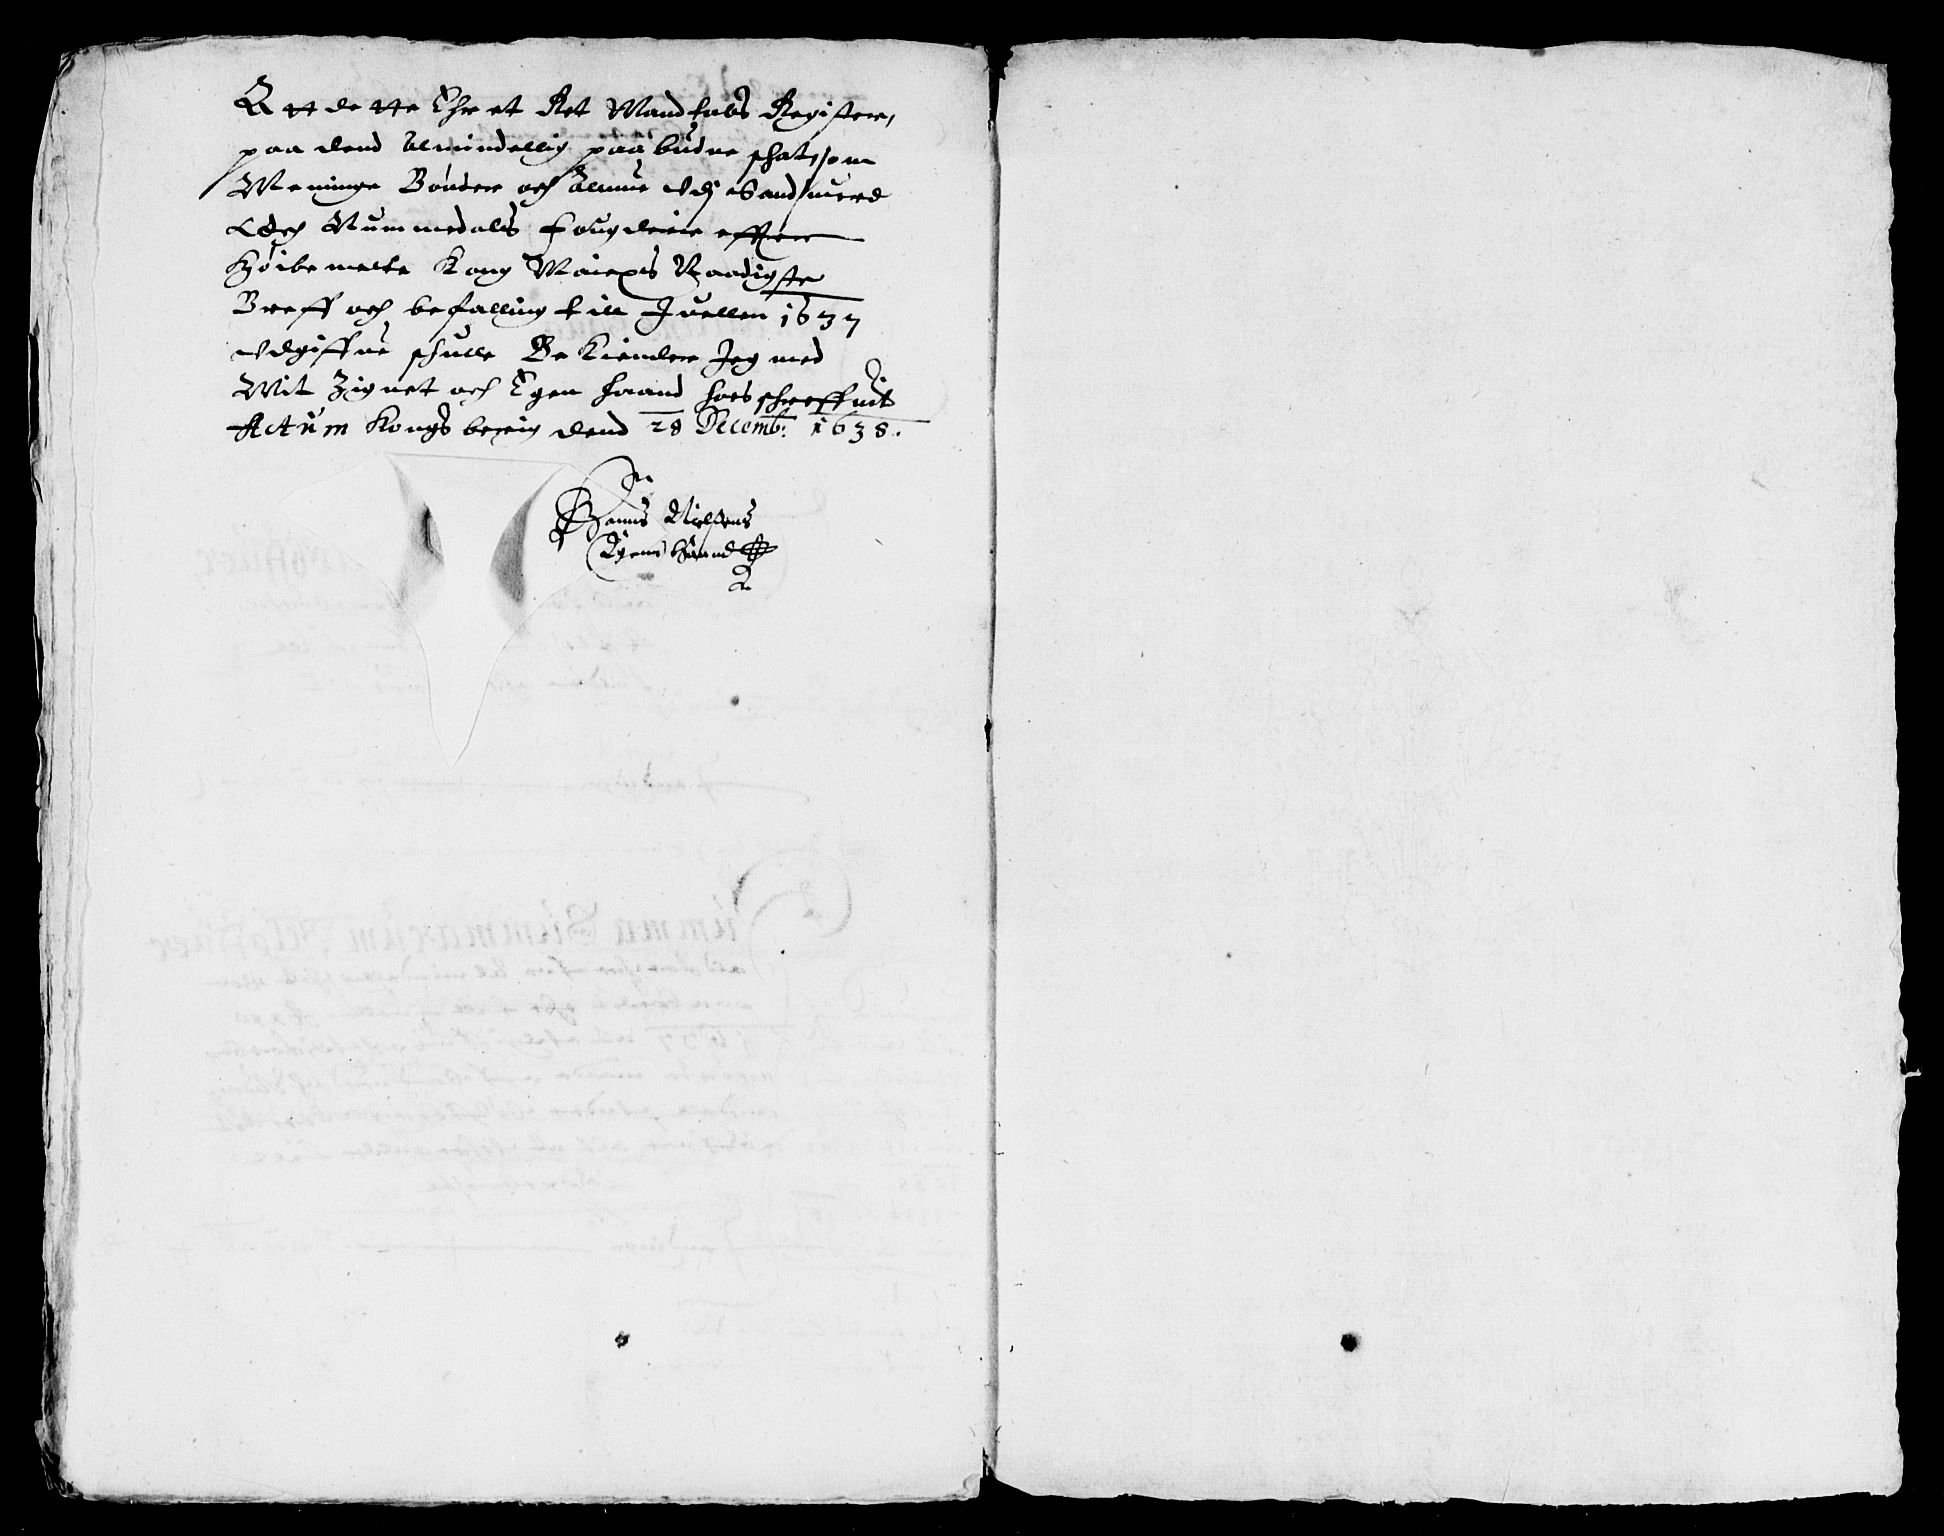 Att dette Ehr et Ret Mandtals Register,
paa dend Almindellig paabudne schat, som
Meninge Bønder och Almue Vdj Sandsuerd
Och Nummedals Fougderie effter
Høibemelte Kong Maiests Naadigste
Breff och befalling till Juellen 1637
Vdgiffue schulle Bekiender Jeg med
Mit Zignet och Egen haand hos schreffuit
Actum Kongsberrig dend 28 Decemb: 1638.
Hanns Nielsens
Egens Haand